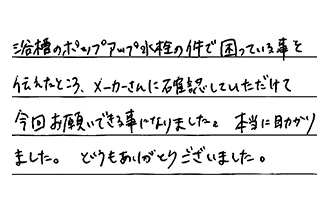 浴槽のポップアップ水栓の件で困っている事を
伝えたところ、メーカーさんに確認していただけて
今回お願いできる事になりました。本当に助かり
ました。どうもありがとうございました。